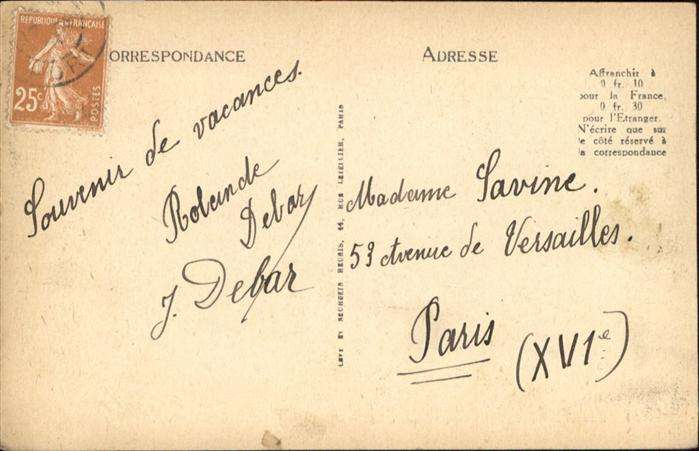 REPUBLIQUE FRANÇAISE
25c
POSTES
ORRESPONDANCE
ADRESSE
Affranchir à
0 fr. 10
pour la France,
0 fr. 30
pour l'Etranger.
N'écrire que sur
e côté réservé à
a correspondance
Souvenir de vacances.
Debar
J. Debar
LEVY ET NEURDEIN REUNIS, 44, RUE LETELLIER, PARIS
Madame Savine.
53 Avenue de Versailles.
Paris
(XVIe)